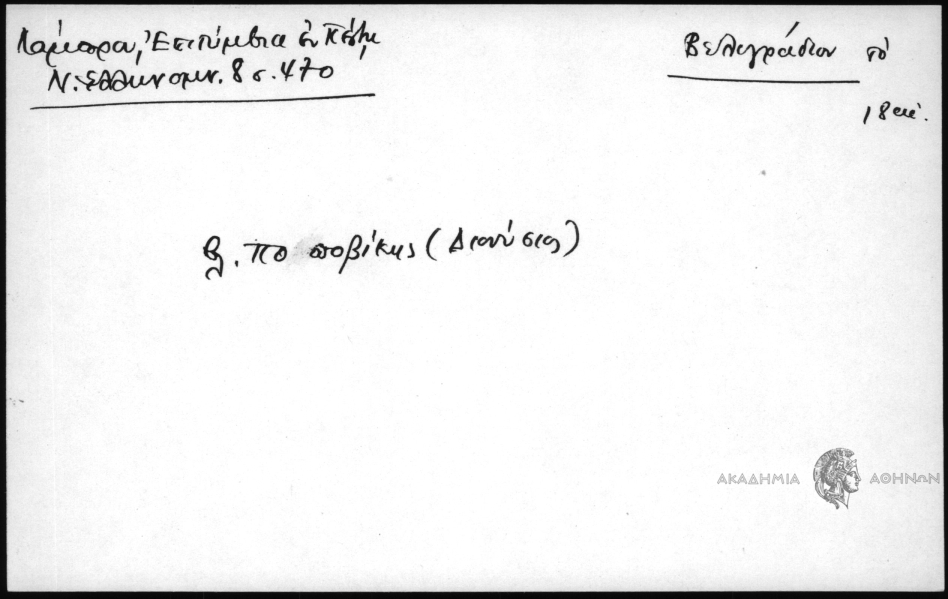 Λάμπρου, Ἐπιτύμβια ἐν Πέστῃ,
Ν. Ἑλληνομν. 8 σ. 470
Βελιγράδιον τὸ
18 αἰ.
βλ. Ποποβίκης (Διονύσιος)
ΑΚΑΔΗΜΙΑ ΑΘΗΝΩΝ